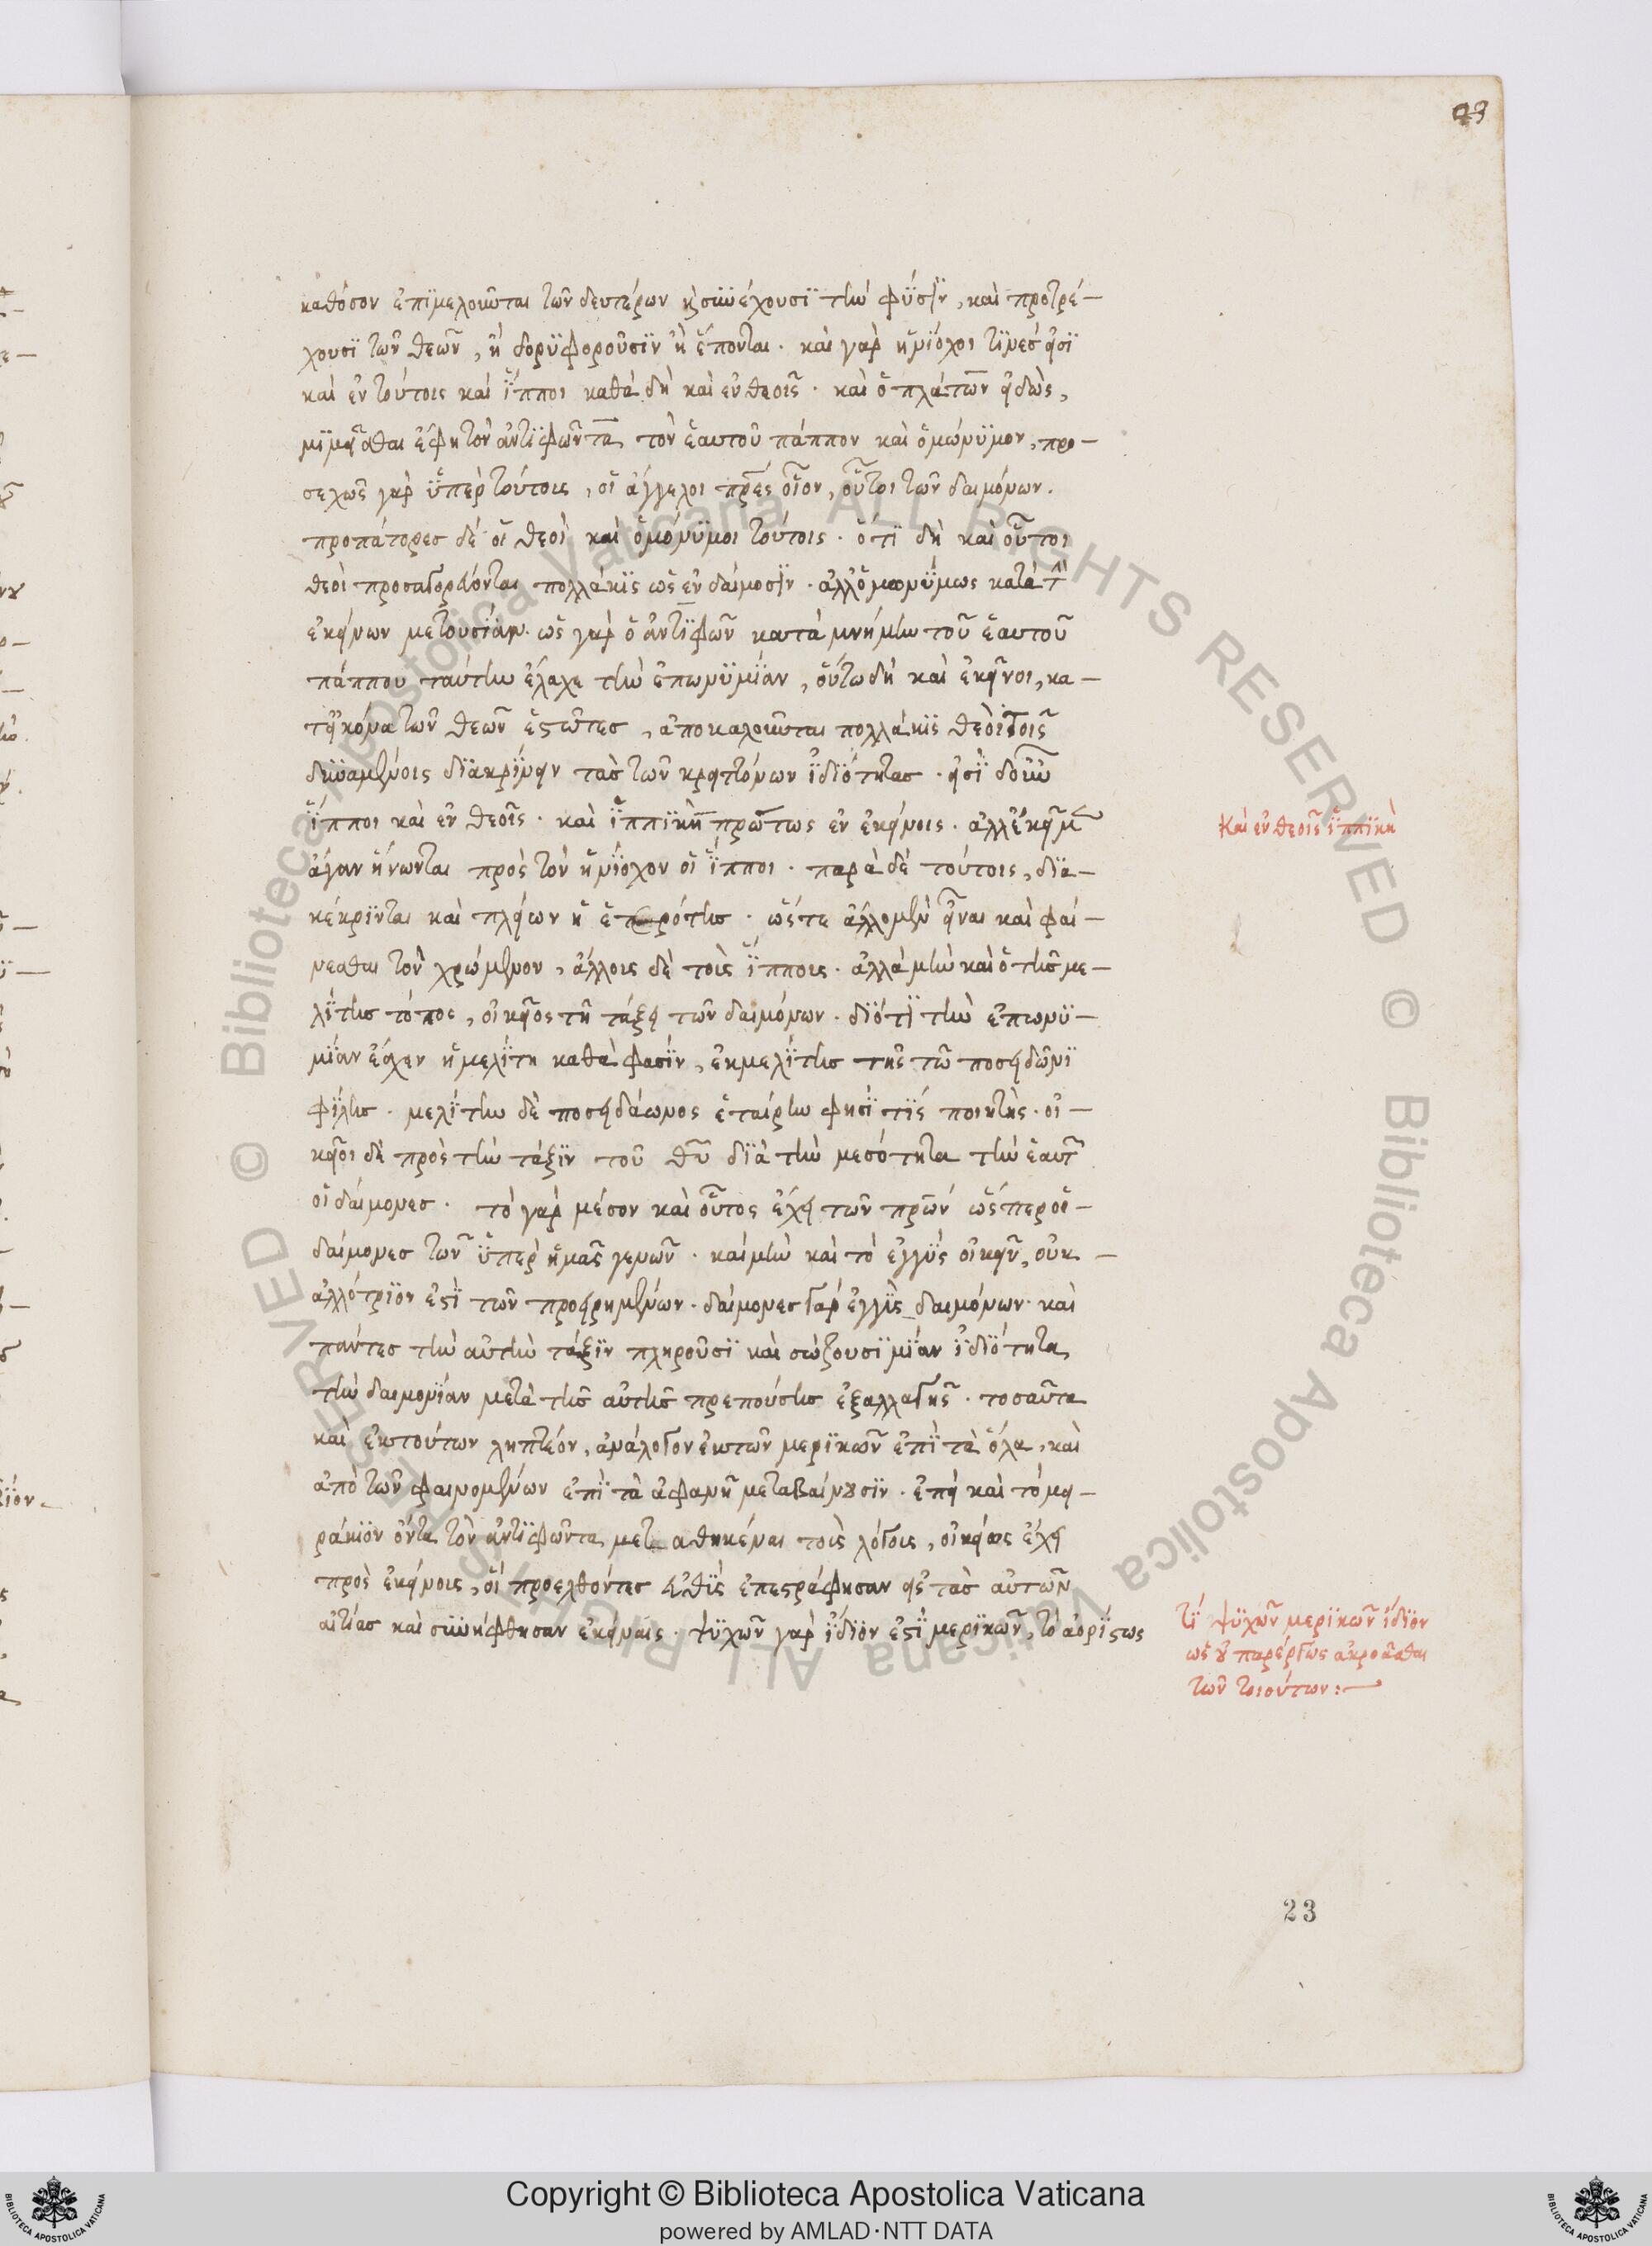 23
καθόσον ἐπιμελοῦνται τῶν δευτέρων κ συνέχουσι τὴν φύσιν, καὶ προτρέ-
χουσι τῶν θεῶν, ἢ δορυφοροῦσιν ἢ ἕπονται. καὶ γὰρ ἡνίοχοι τινές εἰσι
καὶ ἐν τούτοις καὶ ἵπποι καθὰ δὴ καὶ ἐν θεοῖς. καὶ ὁ πλάτων εἰδὼς,
μιμεῖσθαι ἔφη τὸν ἀντιφῶντα τὸν ἑαυτοῦ πάππον καὶ ὁμώνυμον, προ-
σεχῶς γὰρ ὑπὲρ τούτοις, οἱ ἄγγελοι πρες οἷον, οὗτοι τῶν δαιμόνων.
προπάτορες δὲ οἱ θεοὶ καὶ ὁμόνυμοι τούτοις. ὅτι δὴ καὶ οὗτοι
θεοὶ προσαγορεύονται πολλάκις ὡς ἐν δαίμοσιν. ἀλλ' ὁμωνύμως κατὰ τ
ἐκείνων μετουσίαν. ὡς γὰρ ὁ ἀντιφῶν κατὰ μνήμην τοῦ ἑαυτοῦ
πάππου ταύτην ἔλαχε τὴν ἐπωνυμίαν, οὕτω δὴ καὶ ἐκεῖνοι, κα-
τ' εἰκόνα τῶν θεῶν ἑστῶτες, ἀποκαλοῦνται πολλάκις θεοὶ τοῖς
δυναμένοις διακρίνειν τὰς τῶν κρειττόνων ἰδιότητας. εἰσὶ δ' οὖν
ἵπποι καὶ ἐν θεοῖς. καὶ ἱππικὴ πρώτως ἐν ἐκείνοις. ἀλλ' ἐκεῖ μ
ἄγαν ἥνωνται πρὸς τὸν ἡνίοχον οἱ ἵπποι. παρὰ δὲ τούτοις, δια-
κέκρινται καὶ πλείων ἡ ἑτερότης. ὥστε ἄλλο μὲν εἶναι καὶ φαί-
νεσθαι τὸν χρώμενον, ἄλλοις δὲ τοῖς ἵπποις. ἀλλὰ μὴν καὶ ὁ τῆς με-
λίτης τόπος, οἰκεῖος τῆ τάξει τῶν δαιμόνων. διότι τὴν ἐπωνυ-
μίαν ἔσχεν ἡ μελίτη καθὰ φασὶν, ἐκ μελίτης τῆς τῶ ποσειδῶνι
φίλης. μελίτην δὲ ποσειδάωνος ἑταίρην φησί τις ποιητής. οἰ-
κεῖοι δὲ πρὸς τὴν τάξιν τοῦ θυ διὰ τὴν μεσότητα τὴν ἑαυτ
οἱ δαίμονες. τὸ γὰρ μέσον καὶ οὗτος ἔχει τῶν πρων ὥσπερ οἱ
δαίμονες τῶν ὑπὲρ ἡμᾶς γενῶν. καὶ μὴν καὶ τὸ ἐγγὺς οἰκεῖν, οὐκ
ἀλλότριον ἐστὶ τῶν προειρημένων. δαίμονες γὰρ ἐγγὺς δαιμόνων. καὶ
πάντες τὴν αὐτὴν τάξιν πληροῦσι καὶ σώζουσι μίαν ἰδιότητα
τὴν δαιμονίαν μετὰ τῆς αὐτῆς πρεπούσης ἐξαλλαγῆς. τοσαῦτα
καὶ ἐκ τούτων ληπτέον, ἀνάλογον ἐκ τῶν μερικῶν ἐπὶ τὰ ὅλα, καὶ
ἀπὸ τῶν φαινομένων ἐπὶ τὰ ἀφανῆ μεταβαίνουσιν. ἐπεὶ καὶ τὸ μει-
ράκιον ὄντα τὸν ἀντιφῶντα μετ αθηκέναι τοῖς λόγοις, οἰκείως ἔχει
πρὸς ἐκείνοις, οἱ προελθόντες εὐθὺς ἐπεστράφησαν εἰς τὰς αὐτῶν
αἰτίας καὶ συνήφθησαν ἐκείναις. ψυχῶν γὰρ ἴδιον ἐστὶ μερικῶν, τὸ ἀορίστως
Καὶ ἐν θεοῖς ἱππικὴ
τί ψυχῶν μερικῶν ἴδιον
ὡς οὐ παρέργως ἀκροᾶσθαι
τῶν τοιούτων:—
23
© Biblioteca Apostolica Vaticana ALL RIGHTS RESERVED © Biblioteca Apostolica Vaticana ALL RIGHTS RESERVED
Copyright © Biblioteca Apostolica Vaticana
powered by AMLAD·NTT DATA
BIBLIOTECA APOSTOLICA VATICANA
BIBLIOTECA APOSTOLICA VATICANA